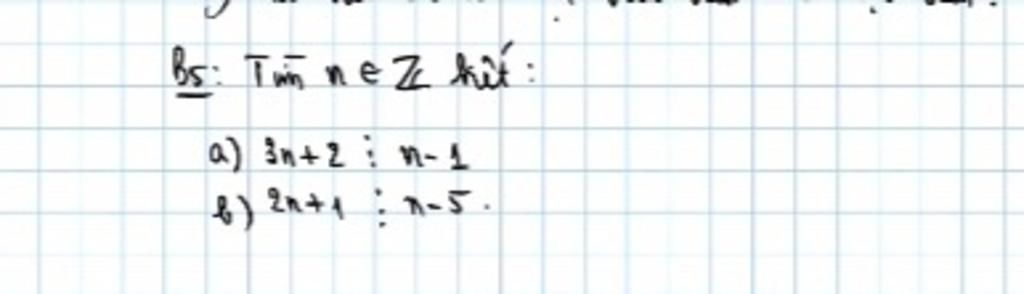 B5: Tìm n ∈ ℤ biết:
a) 3n+2 ⋮ n-1
b) 2n+1 ⋮ n-5.